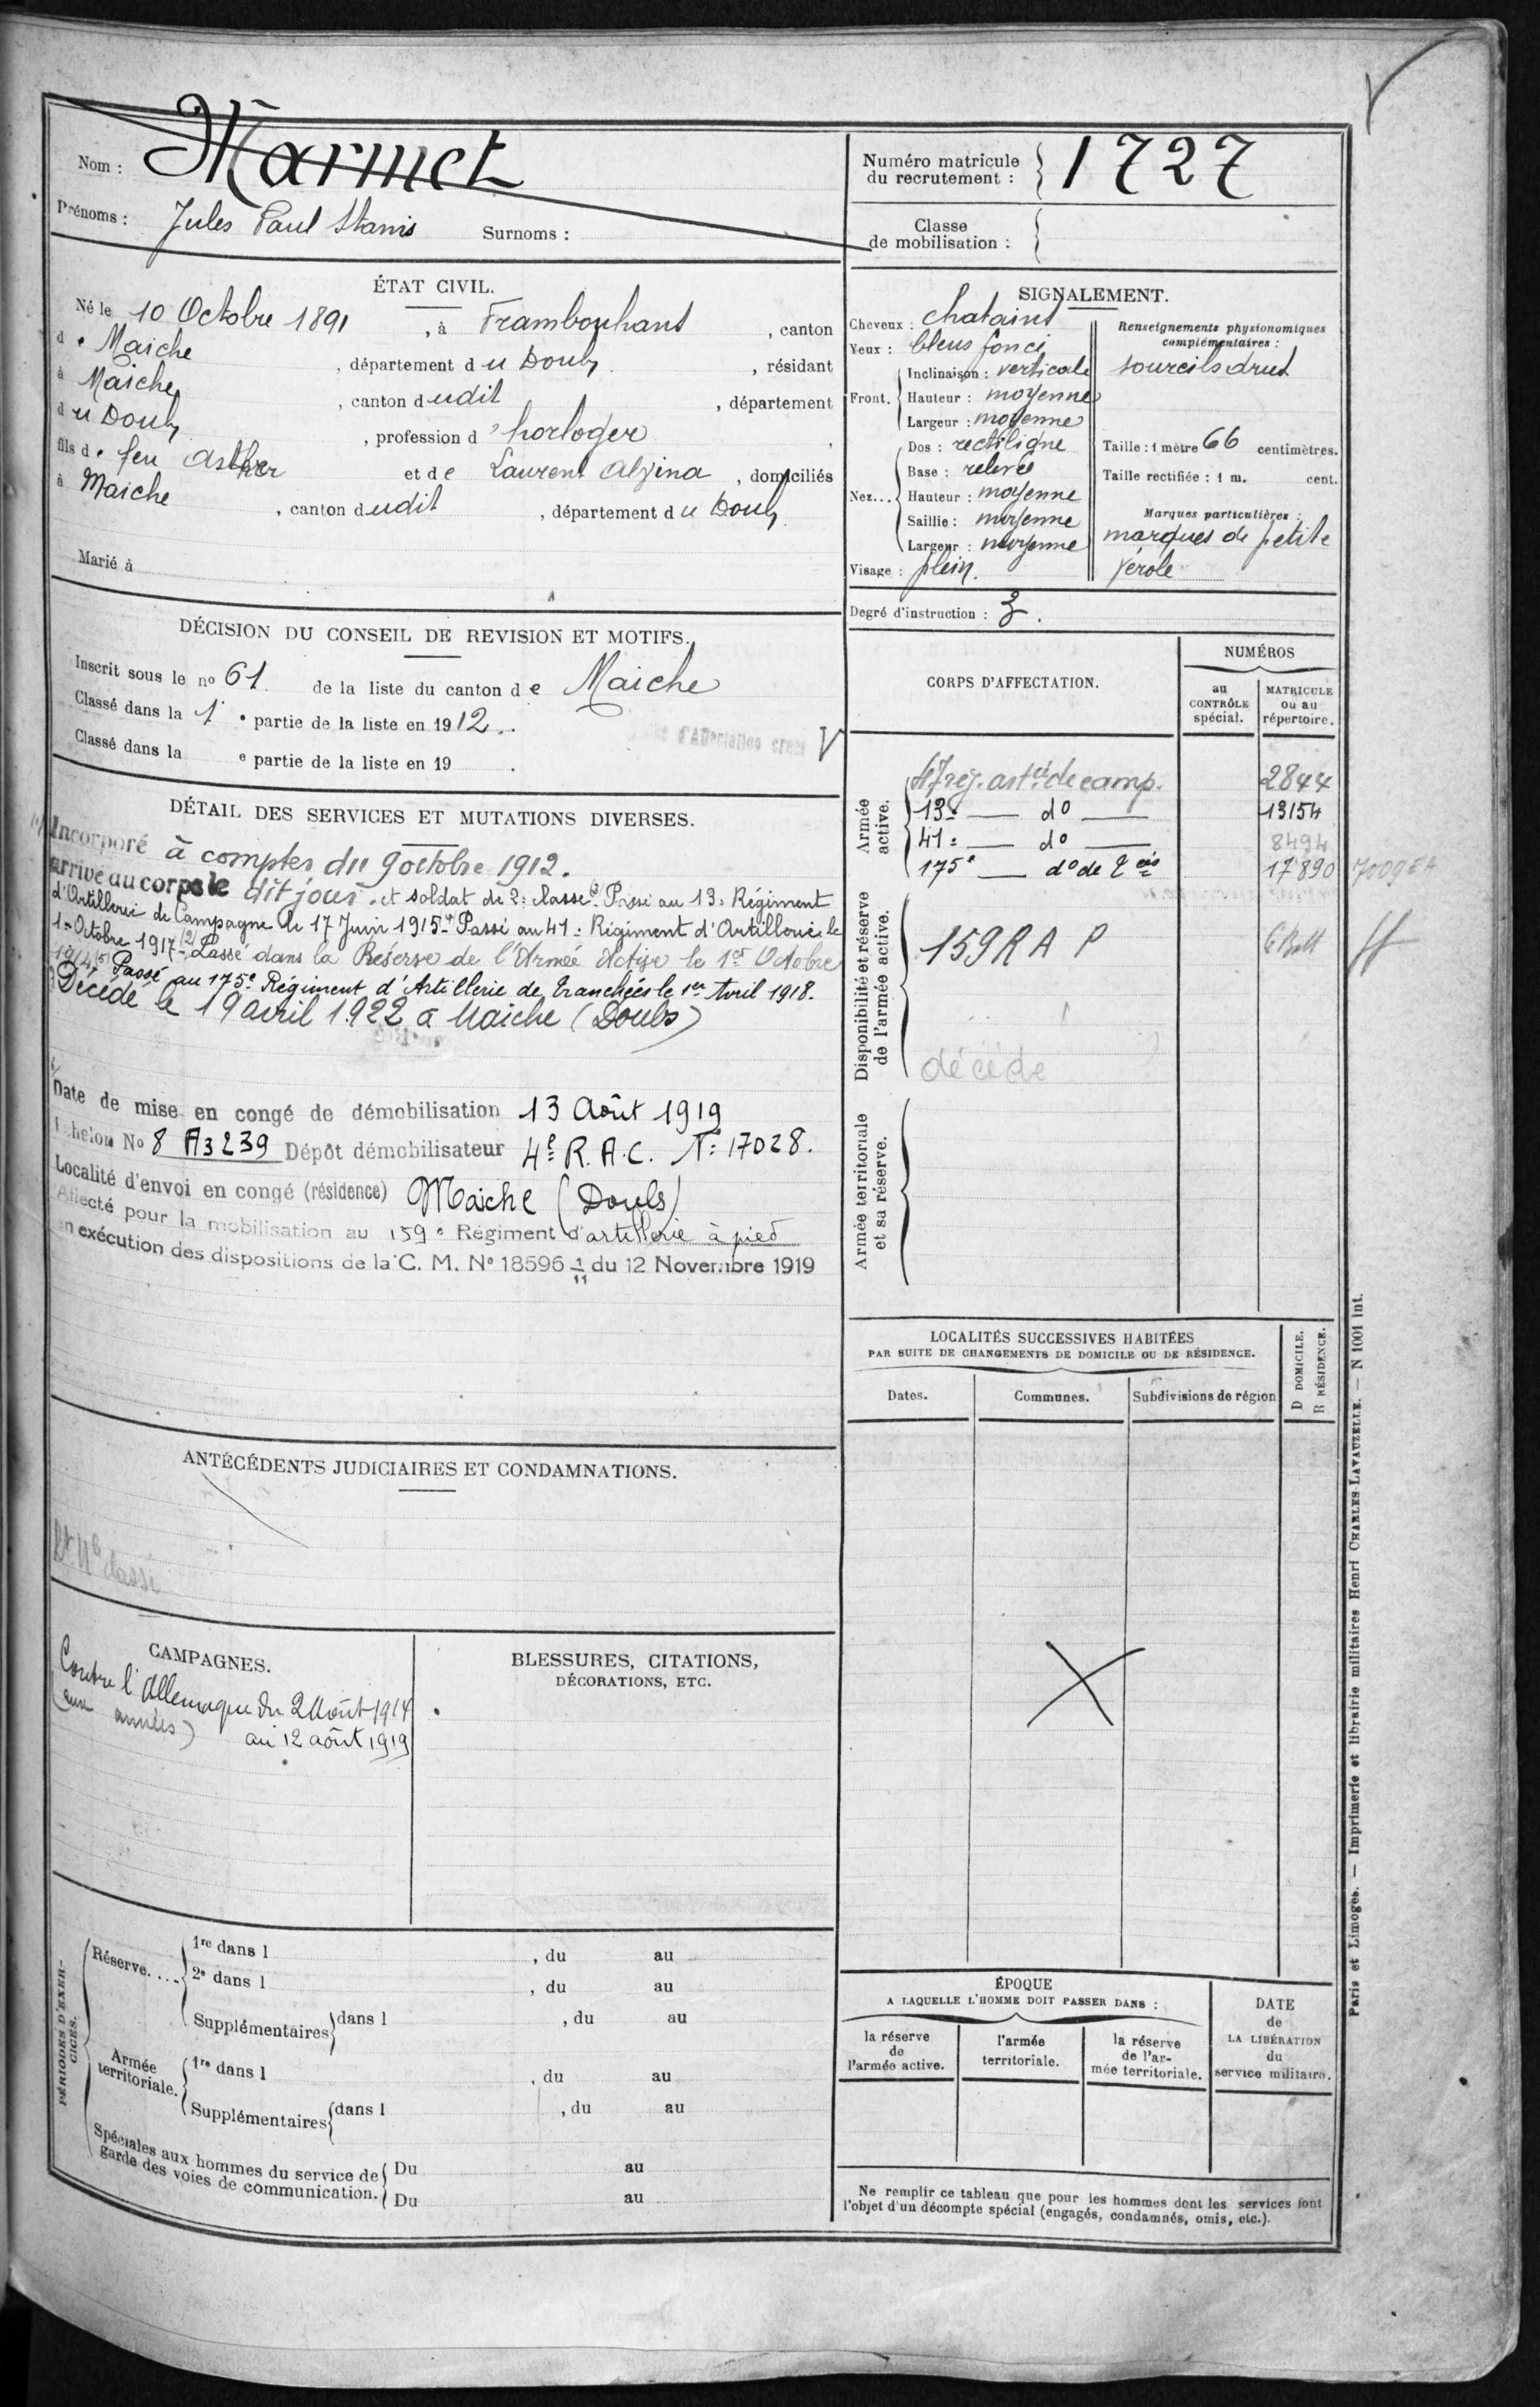 Nom : Marmet
Prénoms : Jules Paul Stanis Surnoms :
ÉTAT CIVIL.
Né le 10 Octobre 1891, à Frambouhans, canton
de Maiche, département du Doubs, résidant
à Maiche, canton dudit, département
du Doubs, profession d'horloger,
fils de feu Asther et de Laurent Alzina, domiciliés
à Maiche, canton dudit, département du Doubs
Marié à
DÉCISION DU CONSEIL DE REVISION ET MOTIFS.
Inscrit sous le no 61 de la liste du canton de Maiche
Classé dans la 1e partie de la liste en 1912.
Classé dans la e partie de la liste en 19 .
d'Affectation V
DÉTAIL DES SERVICES ET MUTATIONS DIVERSES.
Incorporé à compter du 9 octobre 1912.
arrivé au corps le dit jour. et soldat de 2e classe. (3) Passé au 13e Régiment
d'Artillerie de Campagne le 17 Juin 1915 - (4) Passé au 41e Régiment d'Artillerie le
1er Octobre 1917 - (2) Passé dans la Réserve de l'Armée Active le 1er Octobre
1914 (5) Passé au 175e Régiment d'Artillerie de Tranchées le 1er Avril 1918.
Décédé le 19 avril 1922 à Maiche (Doubs)
Date de mise en congé de démobilisation 13 Août 1919
Echelon No 8 A3239 Dépôt démobilisateur 4e R.A.C. No 17028.
Localité d'envoi en congé (résidence) Maiche (Doubs)
Affecté pour la mobilisation au 159e Régiment d'artillerie à pied
en exécution des dispositions de la C. M. No 18596 1/11 du 12 Novembre 1919
ANTÉCÉDENTS JUDICIAIRES ET CONDAMNATIONS.
CAMPAGNES.
Contre l'Allemagne du 2 Août 1914
(aux armées) au 12 août 1919
BLESSURES, CITATIONS,
DÉCORATIONS, ETC.
PÉRIODES D'EXERCICES.
Réserve....
1re dans l , du au
2e dans l , du au
Supplémentaires dans l , du au
Armée territoriale.
1re dans l , du au
Supplémentaires dans l , du au
Spéciales aux hommes du service de
garde des voies de communication.
Du au
Du au
Numéro matricule
du recrutement : 1727
Classe
de mobilisation :
SIGNALEMENT.
Cheveux : chatains
Yeux : bleus foncé
Front.
Inclinaison : verticale
Hauteur : moyenne
Largeur : moyenne
Nez...
Dos : rectiligne
Base : relevée
Hauteur : moyenne
Saillie : moyenne
Largeur : moyenne
Visage : plein.
Renseignements physionomiques
complémentaires :
sourcils drus
Taille : 1 mètre 66 centimètres.
Taille rectifiée : 1 m. cent.
Marques particulières :
marques de petite
vérole
Degré d'instruction : 3.
CORPS D'AFFECTATION.
NUMÉROS
au
CONTRÔLE
spécial.
MATRICULE
ou au
répertoire.
Armée
active.
47 rég. artie de camp. 2844
13e — do — 13154
41e — do — 8494
175e — do de 17890
Disponibilité et réserve
de l'armée active.
159 R A P
décédé
Armée territoriale
et sa réserve.
LOCALITÉS SUCCESSIVES HABITÉES
PAR SUITE DE CHANGEMENTS DE DOMICILE OU DE RÉSIDENCE.
Dates.
Communes.
Subdivisions de région
D DOMICILE.
R RÉSIDENCE.
ÉPOQUE
A LAQUELLE L'HOMME DOIT PASSER DANS :
la réserve
de
l'armée active.
l'armée
territoriale.
la réserve
de l'ar-
mée territoriale.
DATE
de
LA LIBÉRATION
du
service militaire.
Ne remplir ce tableau que pour les hommes dont les services font
l'objet d'un décompte spécial (engagés, condamnés, omis, etc.).
Paris et Limoges. — Imprimerie et librairie militaires Henri CHARLES-LAVAUZELLE. — N 1001 int.